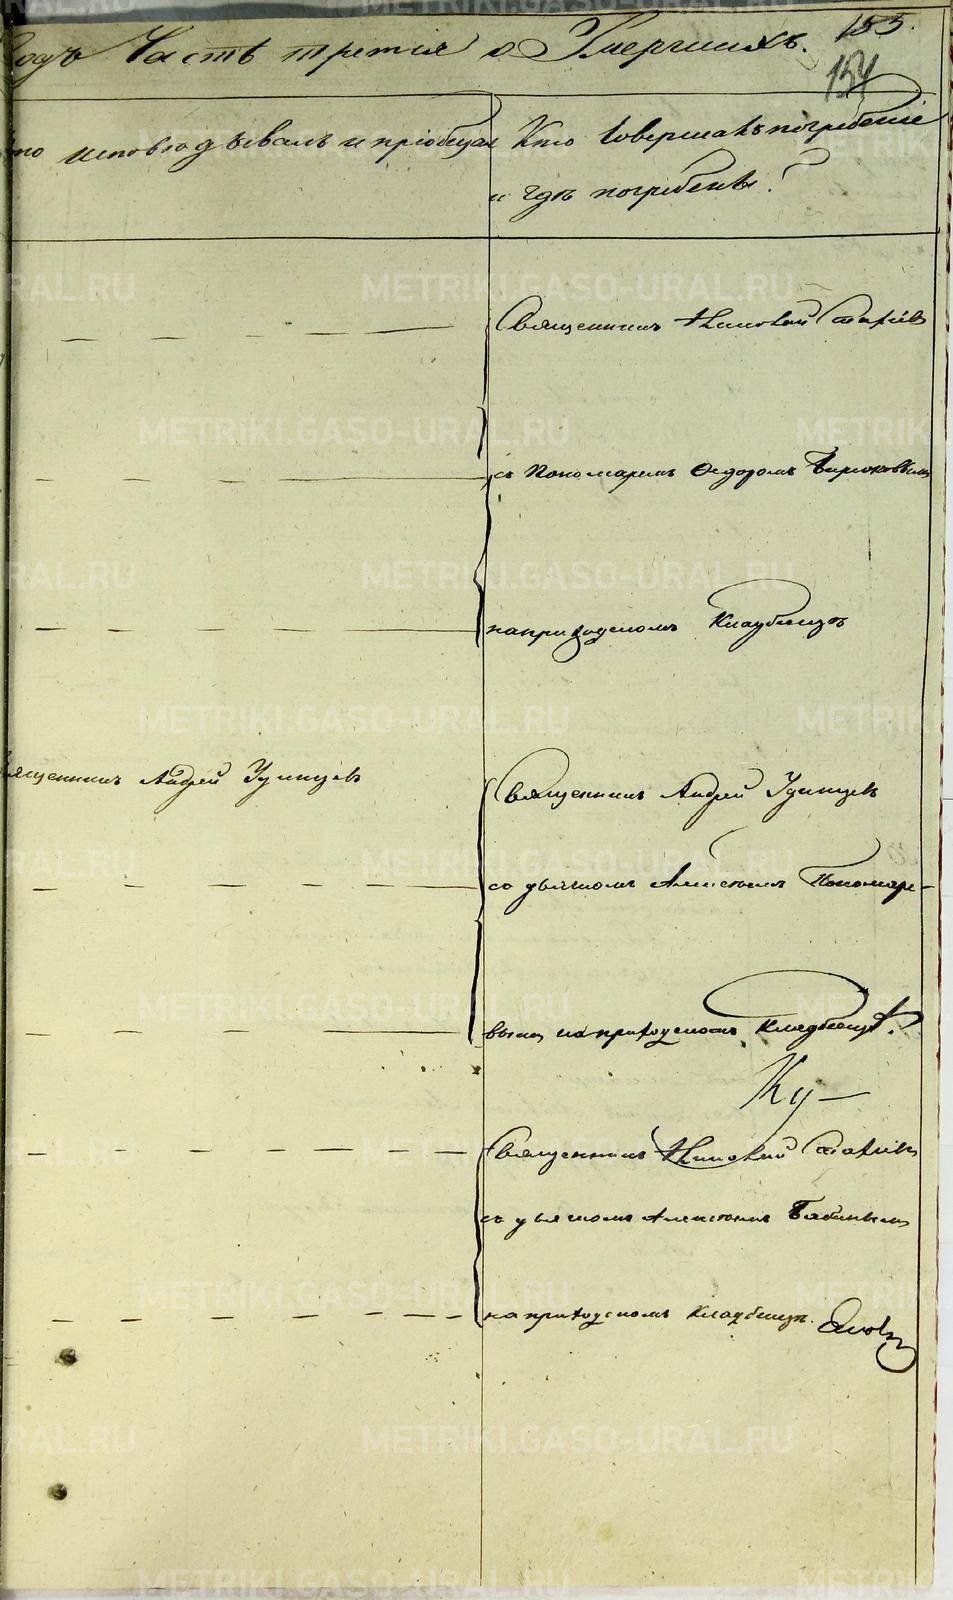 годъ Часть третія о Умершихъ. 155.
154
кто исповѣдывалъ и пріобщал
Кто Совершалъ погребеніе
и гдѣ погребены?
Священникъ Николай
съ Пономаремъ Ѳедоромъ Бирюковымъ
на приходскомъ Кладбищѣ
Священникъ Андрей Удинцевъ
Священникъ Андрей Удинцевъ
со дьячкомъ Алексѣемъ Пономаре-
вымъ на приходскомъ Кладбищѣ.
Священникъ Николай
съ дьячкомъ Алексѣемъ Бабинымъ
на приходскомъ Кладбищѣ.
METRIKI.GASO-URAL.RU